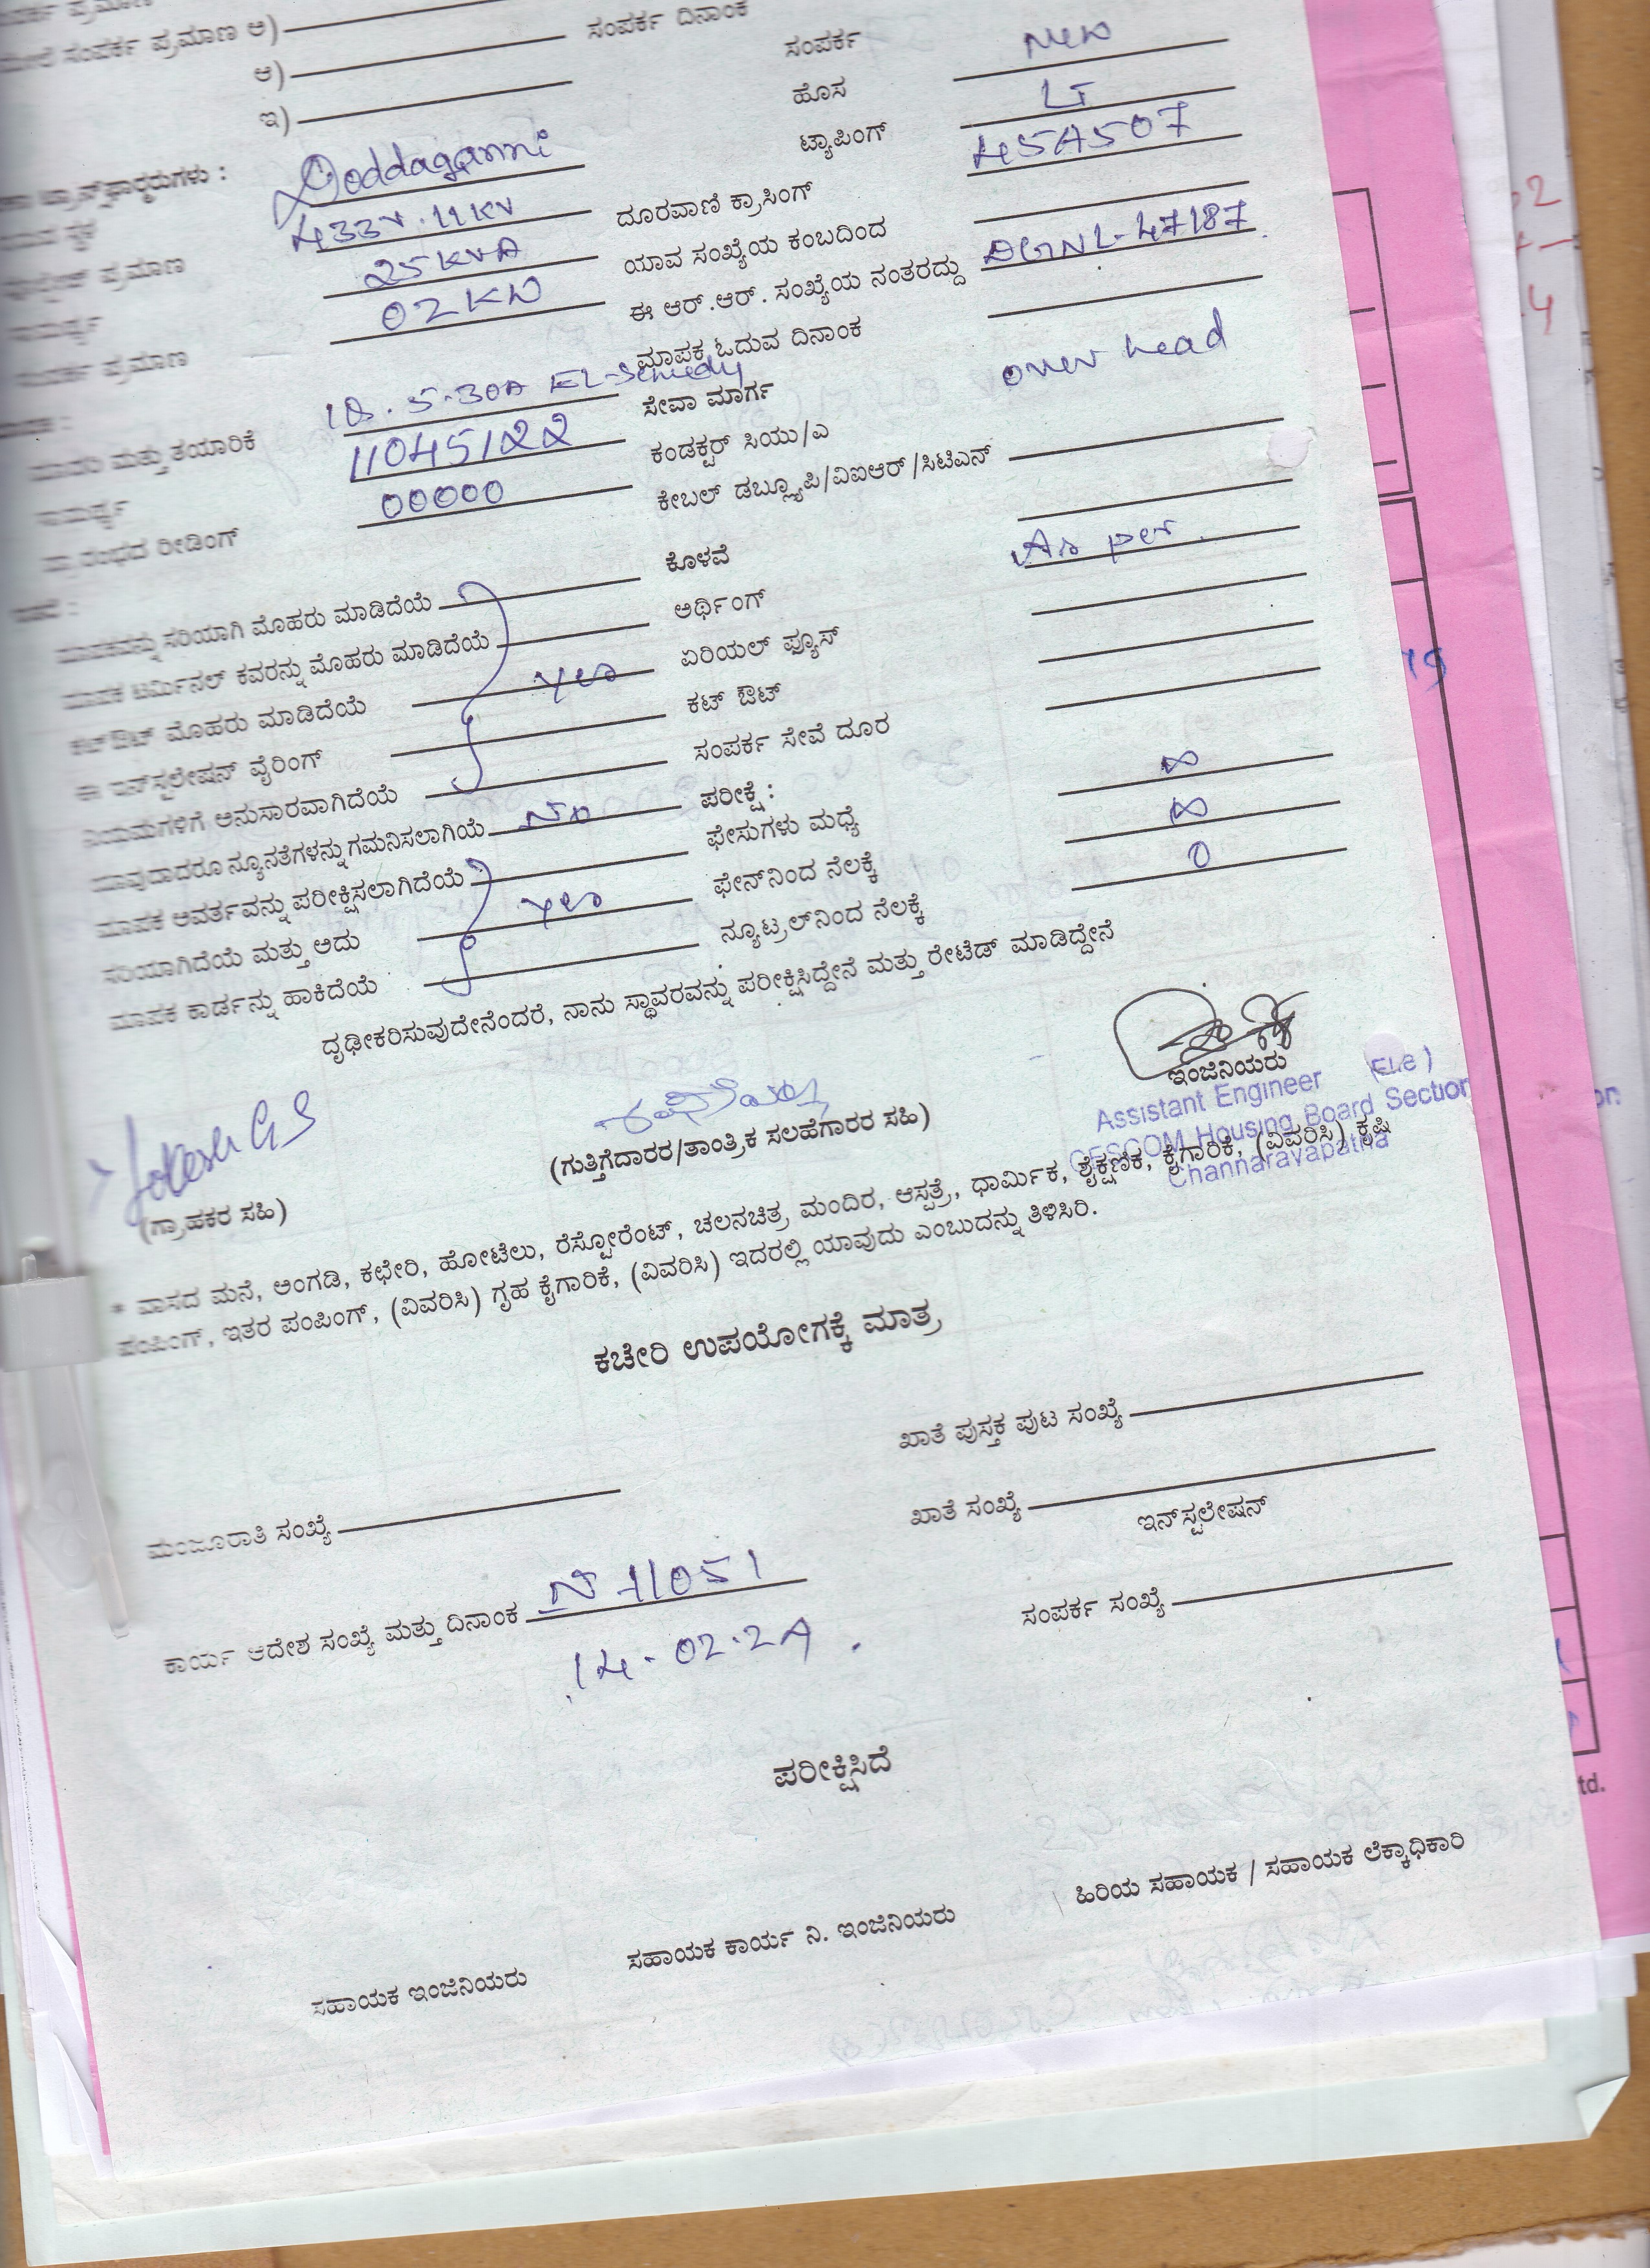 ಸಂಪರ್ಕ ಪ್ರಮಾಣ ಅ)
ಆ)
ಇ)
ಸಂಪರ್ಕ ದಿನಾಂಕ
ಸಂಪರ್ಕ New
ಹೊಸ LT
ಟ್ಯಾಪಿಂಗ್ 45A507
Doddaganni
433v. 11KV ದೂರವಾಣಿ ಕ್ರಾಸಿಂಗ್
ಪ್ರಮಾಣ 25KVA ಯಾವ ಸಂಖ್ಯೆಯ ಕಂಬದಿಂದ DGNL-47187
ಸಾಮರ್ಥ್ಯ 02KW ಈ ಆರ್.ಆರ್. ಸಂಖ್ಯೆಯ ನಂತರದ್ದು
ಪ್ರಮಾಣ ಮಾಪಕ ಓದುವ ದಿನಾಂಕ
ಮತ್ತು ತಯಾರಿಕೆ 5-30A ಸೇವಾ ಮಾರ್ಗ over head
ಸಾಮರ್ಥ್ಯ 11045122 ಕಂಡಕ್ಟರ್ ಸಿಯು/ಎ
ರೀಡಿಂಗ್ 00000 ಕೇಬಲ್ ಡಬ್ಲ್ಯೂಪಿ/ವಿಐಆರ್/ಸಿಟಿಎಸ್
ಕೊಳವೆ As per.
ಮಾಪಕವನ್ನು ಸರಿಯಾಗಿ ಮೊಹರು ಮಾಡಿದೆಯೆ ಅರ್ಥಿಂಗ್
ಮಾಪಕ ಟರ್ಮಿನಲ್ ಕವರನ್ನು ಮೊಹರು ಮಾಡಿದೆಯೆ ಏರಿಯಲ್ ಫ್ಯೂಸ್
ಕಟ್‌ಔಟ್ ಮೊಹರು ಮಾಡಿದೆಯೆ yes ಕಟ್ ಔಟ್
ಈ ಇನ್‌ಸ್ಟಲೇಷನ್ ವೈರಿಂಗ್ ಸಂಪರ್ಕ ಸೇವೆ ದೂರ
ನಿಯಮಗಳಿಗೆ ಅನುಸಾರವಾಗಿದೆಯೆ ಪರೀಕ್ಷೆ :
ಯಾವುದಾದರೂ ನ್ಯೂನತೆಗಳನ್ನು ಗಮನಿಸಲಾಗಿಯೆ No ಫೇಸುಗಳು ಮಧ್ಯೆ ∞
ಮಾಪಕ ಆವರ್ತವನ್ನು ಪರೀಕ್ಷಿಸಲಾಗಿದೆಯೆ ಫೇಸ್‌ನಿಂದ ನೆಲಕ್ಕೆ ∞
ಸರಿಯಾಗಿದೆಯೆ ಮತ್ತು ಅದು yes ನ್ಯೂಟ್ರಲ್‌ನಿಂದ ನೆಲಕ್ಕೆ 0
ಮಾಪಕ ಕಾರ್ಡನ್ನು ಹಾಕಿದೆಯೆ
ದೃಢೀಕರಿಸುವುದೇನೆಂದರೆ, ನಾನು ಸ್ಥಾವರವನ್ನು ಪರೀಕ್ಷಿಸಿದ್ದೇನೆ ಮತ್ತು ರೇಟೆಡ್ ಮಾಡಿದ್ದೇನೆ
ಇಂಜಿನಿಯರು
Assistant Engineer (Ele)
CESCOM Housing Board Section
Channarayapatna
(ಗುತ್ತಿಗೆದಾರರ/ತಾಂತ್ರಿಕ ಸಲಹೆಗಾರರ ಸಹಿ)
(ಗ್ರಾಹಕರ ಸಹಿ)
* ವಾಸದ ಮನೆ, ಅಂಗಡಿ, ಕಛೇರಿ, ಹೋಟೆಲು, ರೆಸ್ಟೋರೆಂಟ್, ಚಲನಚಿತ್ರ ಮಂದಿರ, ಆಸ್ಪತ್ರೆ, ಧಾರ್ಮಿಕ, ಶೈಕ್ಷಣಿಕ, ಕೈಗಾರಿಕೆ, (ವಿವರಿಸಿ) ಕೃಷಿ
ಪಂಪಿಂಗ್, ಇತರ ಪಂಪಿಂಗ್, (ವಿವರಿಸಿ) ಗೃಹ ಕೈಗಾರಿಕೆ, (ವಿವರಿಸಿ) ಇದರಲ್ಲಿ ಯಾವುದು ಎಂಬುದನ್ನು ತಿಳಿಸಿರಿ.
ಕಚೇರಿ ಉಪಯೋಗಕ್ಕೆ ಮಾತ್ರ
ಖಾತೆ ಪುಸ್ತಕ ಪುಟ ಸಂಖ್ಯೆ
ಮಂಜೂರಾತಿ ಸಂಖ್ಯೆ
ಖಾತೆ ಸಂಖ್ಯೆ
ಇನ್‌ಸ್ಟಲೇಷನ್
ಕಾರ್ಯ ಆದೇಶ ಸಂಖ್ಯೆ ಮತ್ತು ದಿನಾಂಕ N 11051
ಸಂಪರ್ಕ ಸಂಖ್ಯೆ
14-02-24.
ಪರೀಕ್ಷಿಸಿದೆ
ಸಹಾಯಕ ಇಂಜಿನಿಯರು ಸಹಾಯಕ ಕಾರ್ಯ ನಿ. ಇಂಜಿನಿಯರು ಹಿರಿಯ ಸಹಾಯಕ / ಸಹಾಯಕ ಲೆಕ್ಕಾಧಿಕಾರಿ
td.